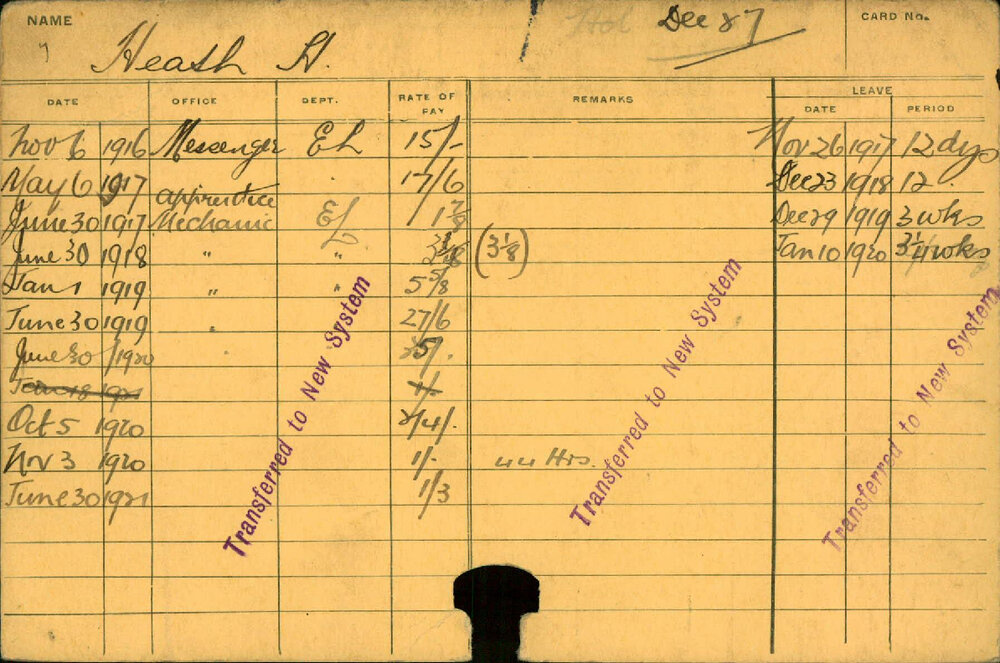 NAME Dec 87 CARD No.
Heath H.
LEAVE
DATE OFFICE DEPT. RATE OF PAY REMARKS DATE PERIOD
Nov 6 1916 Messenger EL 15/- Nov 26 1917 12 dys
May 6 1917 " 17/6 Dec 23 1918 12
June 30 1917 apprentice Mechanic EL Dec 29 1919 3 wks
June 30 1918 " " (3 1/8) Jan 10 1920 wks
Jan 1 1919 " " 5 5/8
June 30 1919 " 27/6
June 30 1920
Oct 5 1920
Nov 3 1920 1/- 44 Hrs.
June 30 1921 1/3
Transferred to New System
Transferred to New System
Transferred to New System